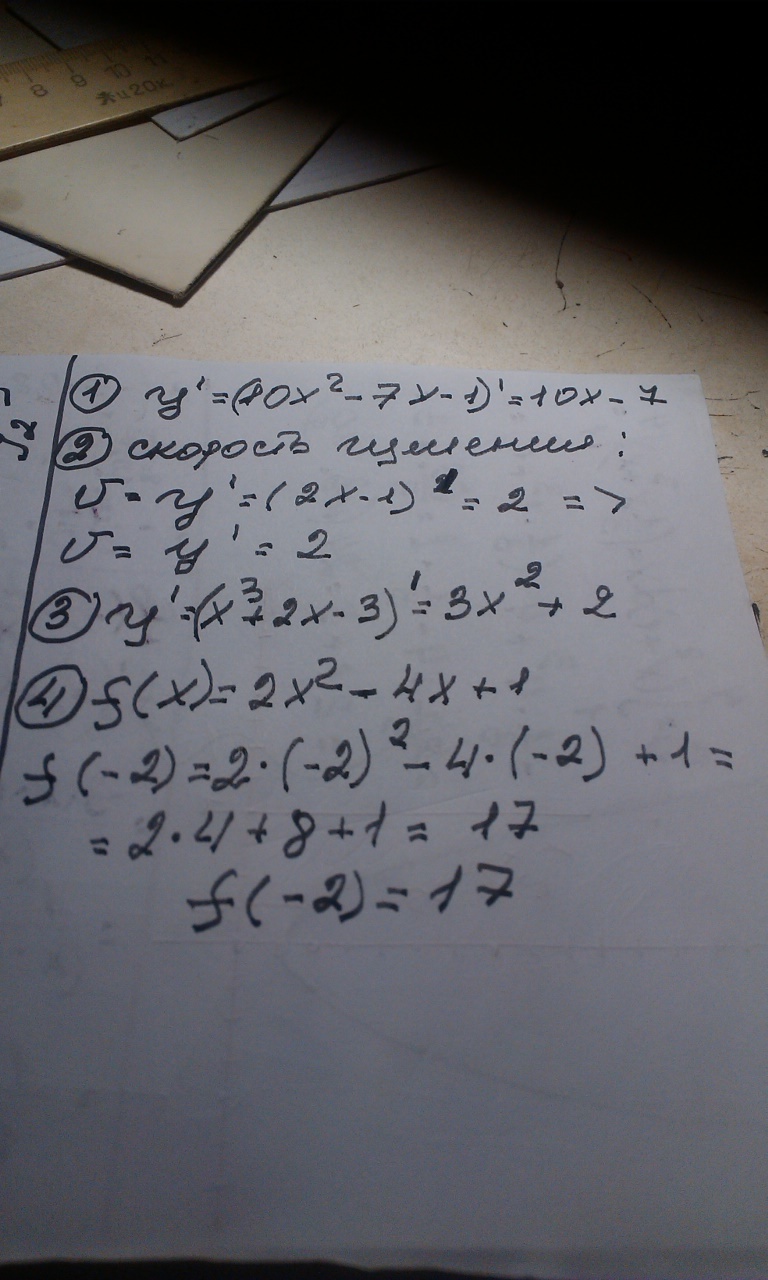 7 8 9 10 11
ж и20к
① y' = (10x² - 7x - 1)' = 10x - 7
② скорость изменения :
v = y' = (2x - 1)' = 2 =>
v = y' = 2
③ y' = (x³ + 2x - 3)' = 3x² + 2
④ f(x) = 2x² - 4x + 1
f(-2) = 2·(-2)² - 4·(-2) + 1 =
= 2·4 + 8 + 1 = 17
f(-2) = 17